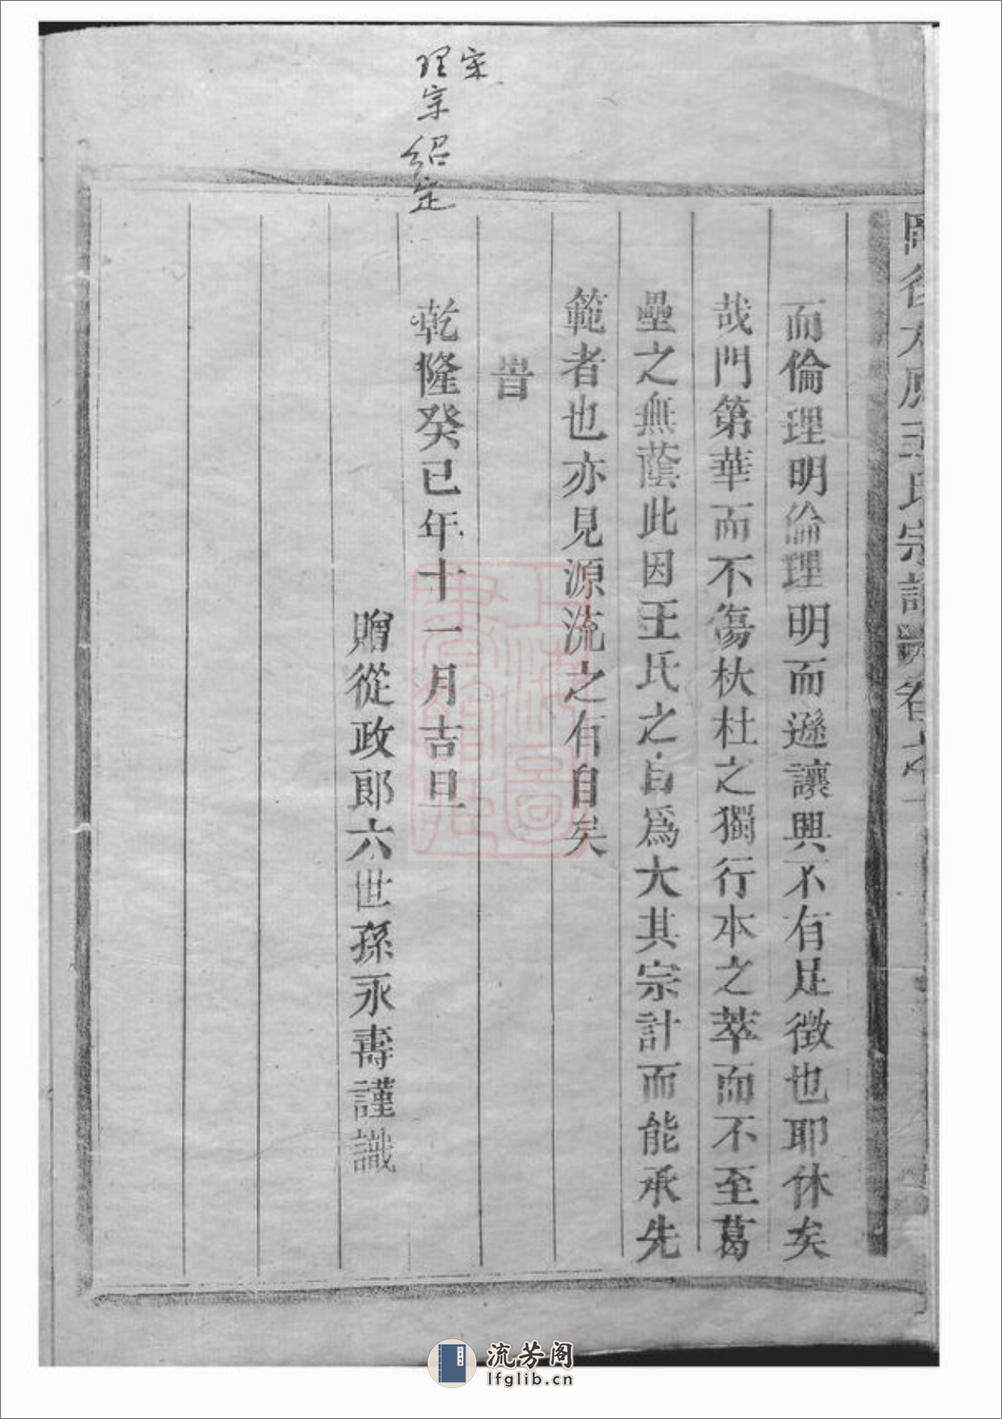 宋
理宗紹定
王氏宗譜
而倫理明倫理明而遜讓興不有足徵也耶休矣
哉門第華而不傷杕杜之獨行本之萃而不至葛
壘之無蔭此因王氏之自為大其宗計而能承先
範者也亦見源流之有自矣
旹
乾隆癸巳年十一月吉旦
贈從政郎六世孫永壽謹識
上海圖書館藏
流芳阁
lfglib.cn